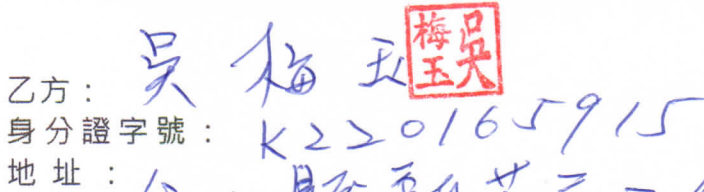 乙方：吳梅玉
梅玉吳
身分證字號：K220165915
地址：